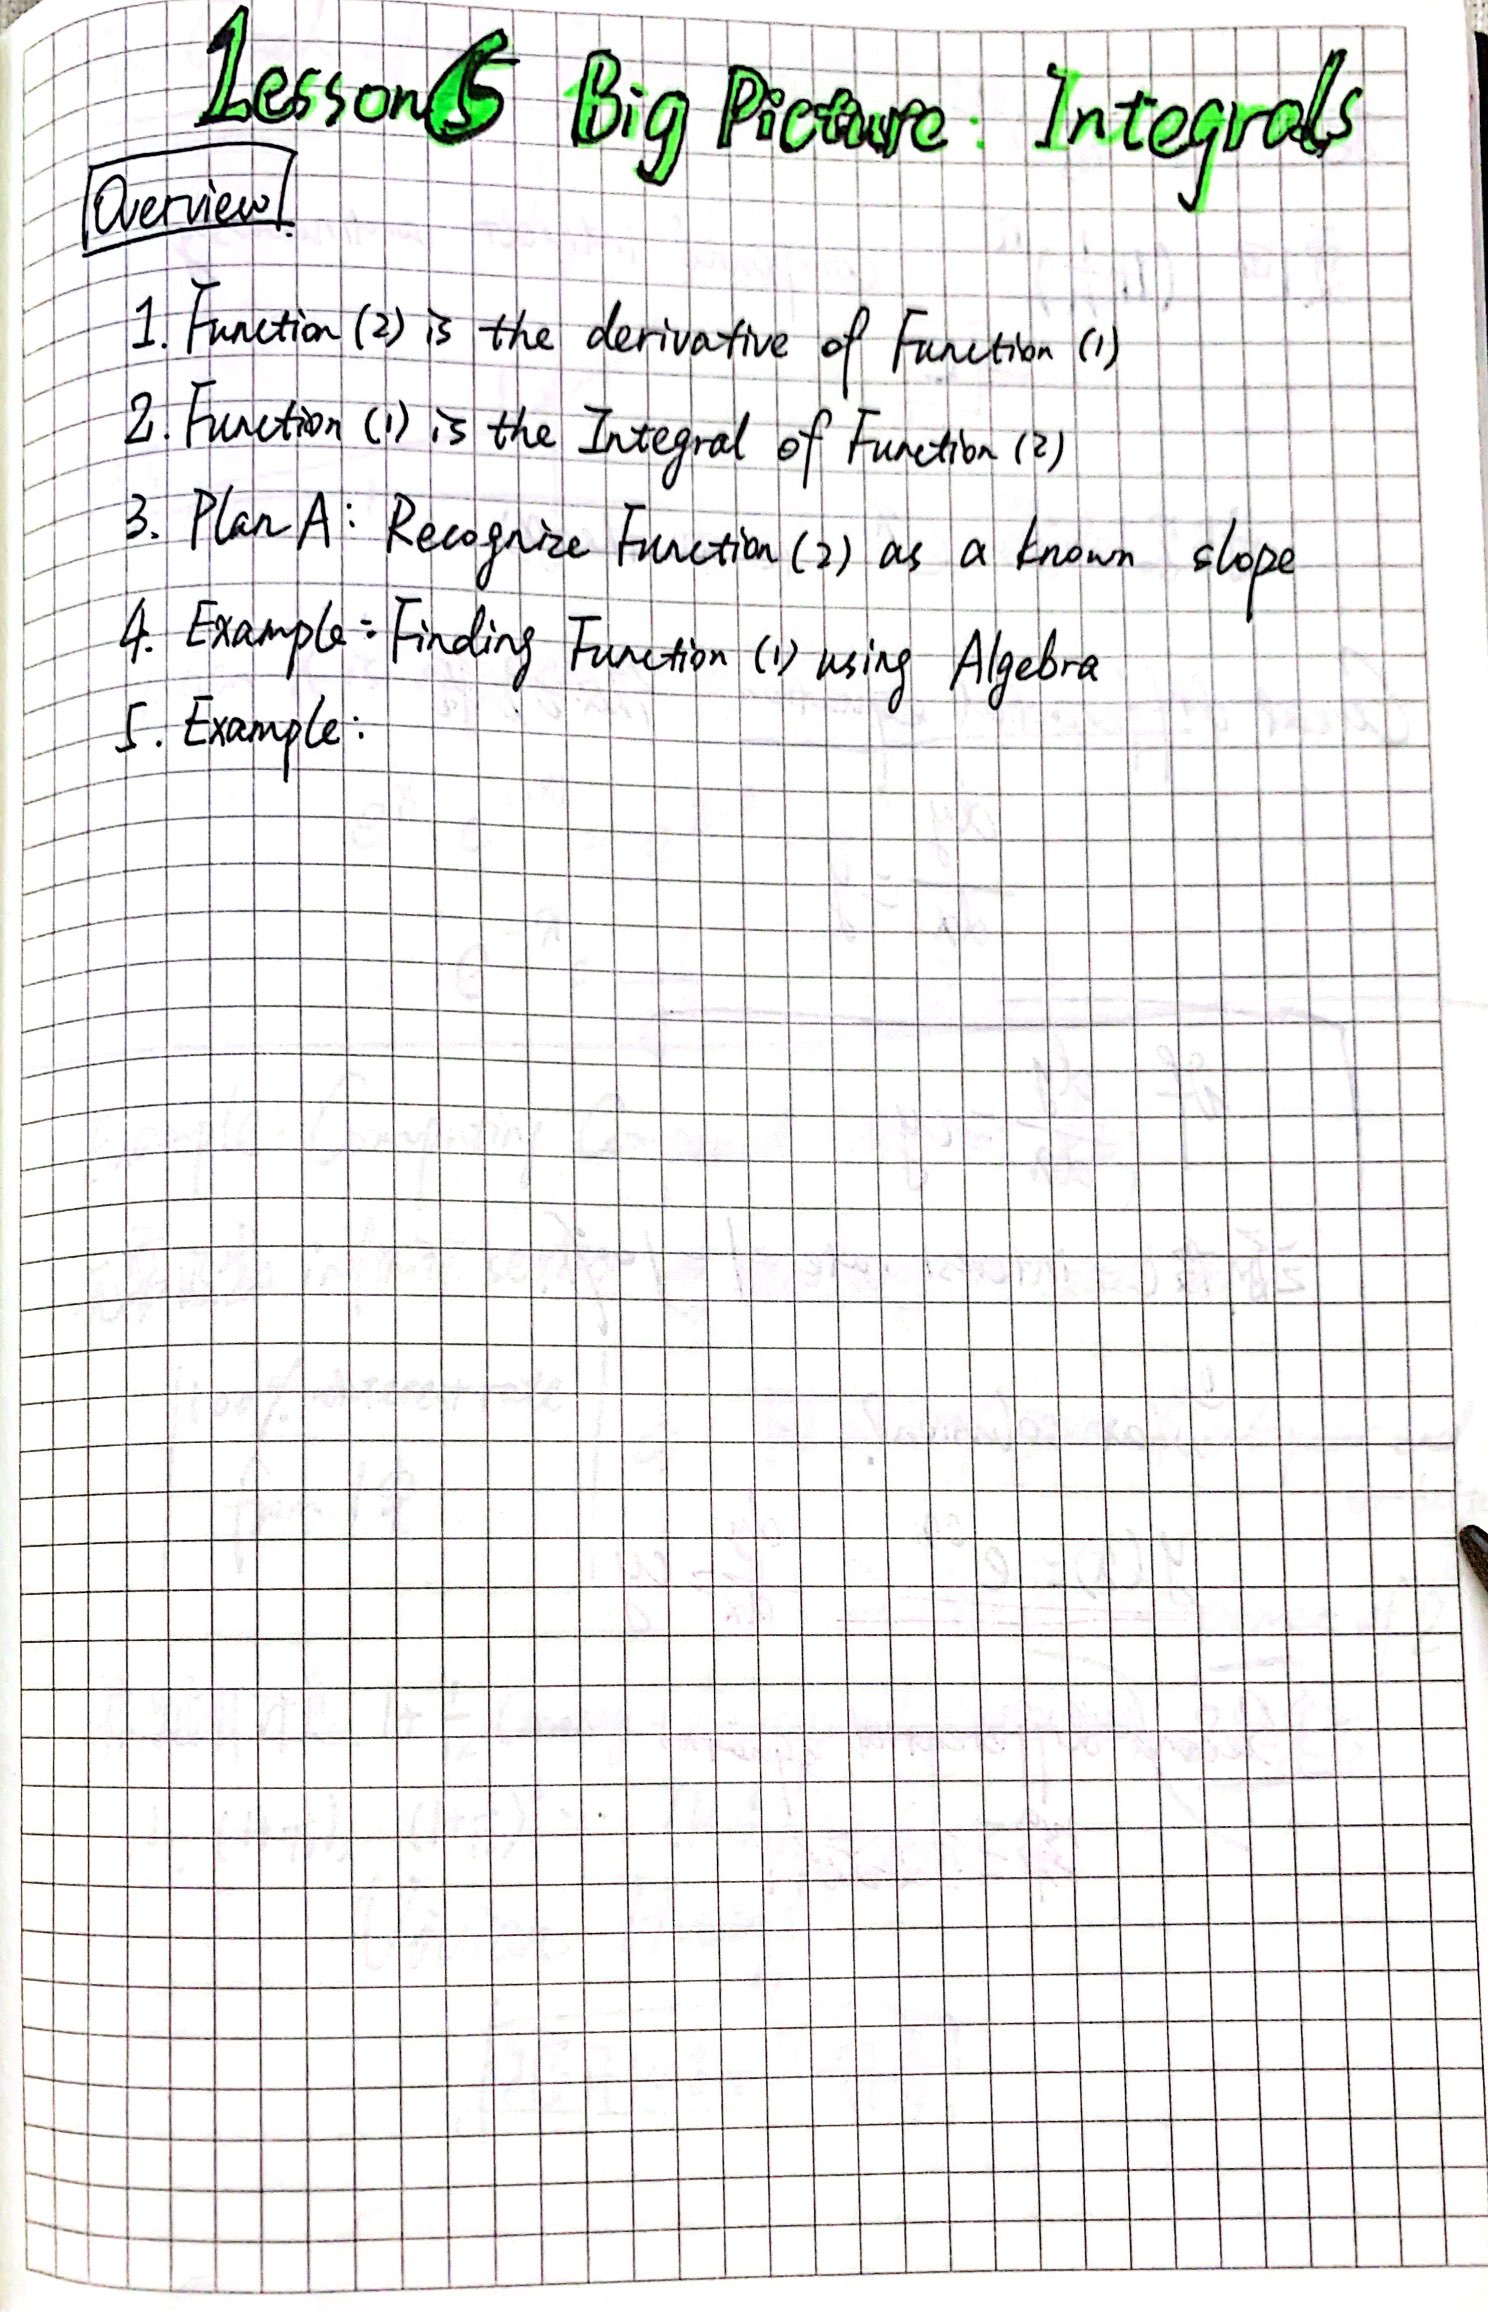 Lesson 5 Big Picture: Integrals
Overview
1. Function (2) is the derivative of Function (1)
2. Function (1) is the Integral of Function (2)
3. Plan A: Recognize Function (2) as a known slope
4. Example: Finding Function (1) using Algebra
5. Example: